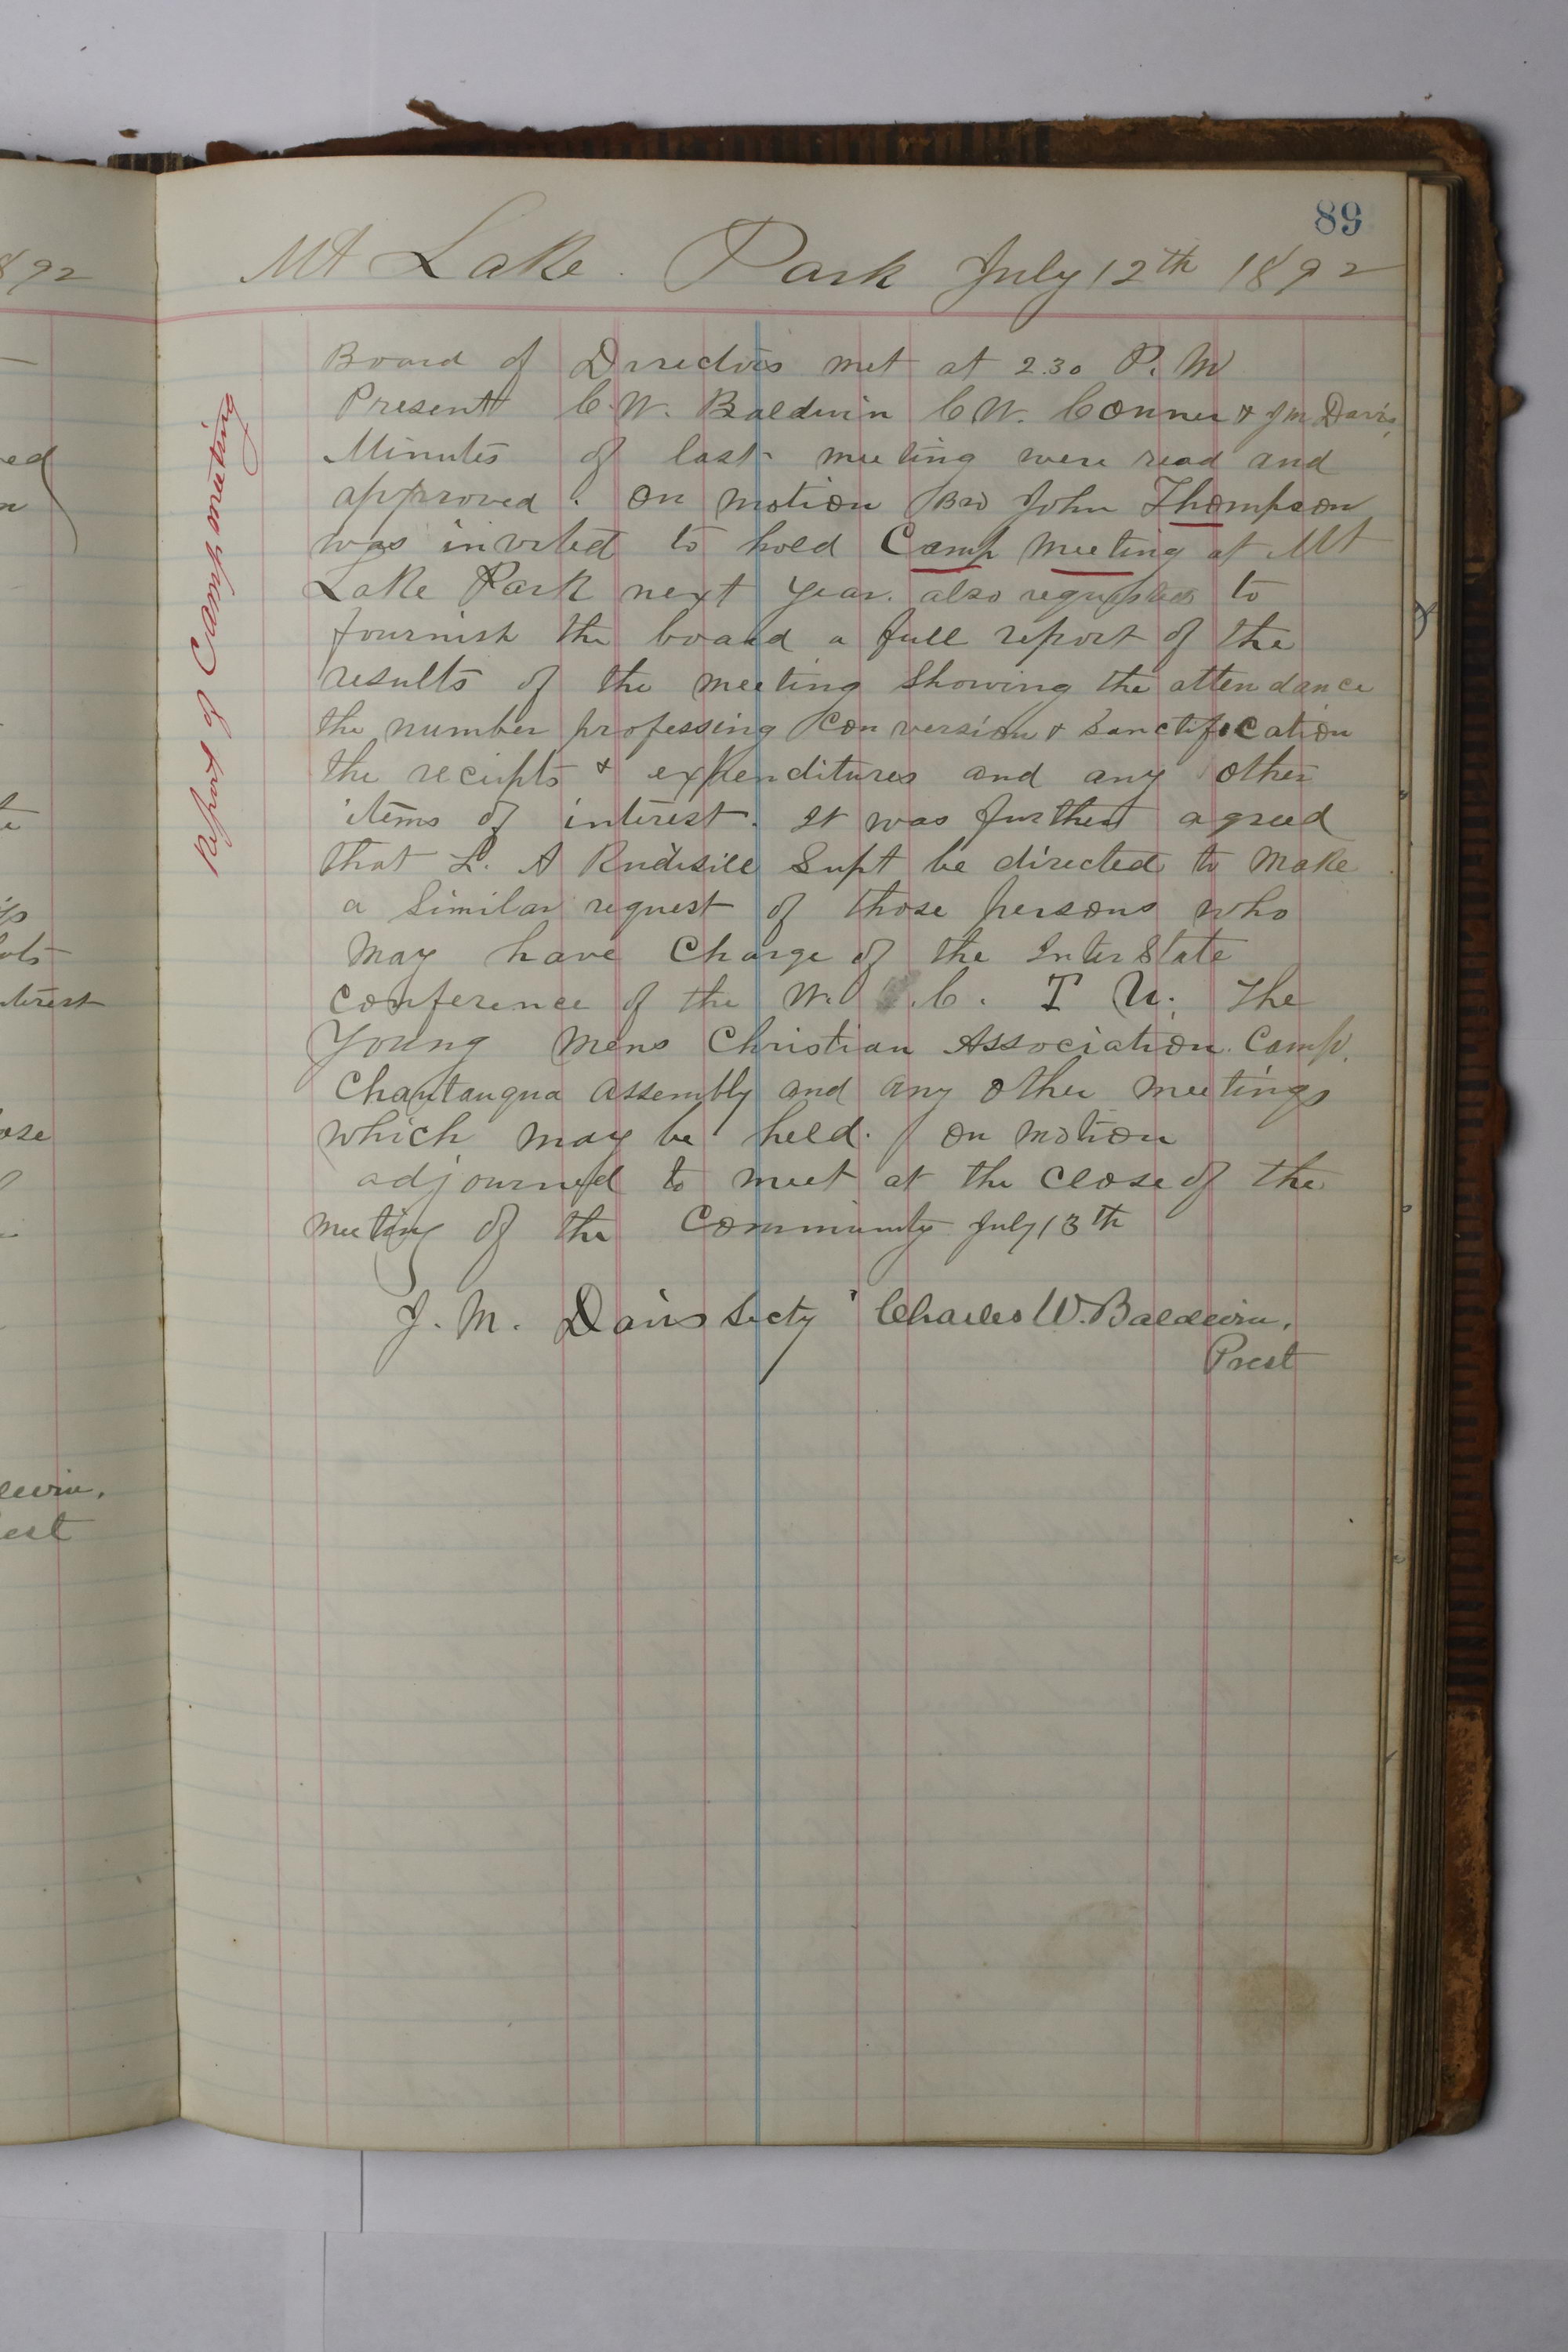 89
Mt Lake Park July 12th 1892
Board of Directors met at 2.30 P. M
Present C. W. Baldwin C W. Conner & J M Davis
Minutes of last meeting were read and
approved. on motion Bro John Thompson
was invited to hold Camp meeting at Mt
Lake Park next year. also requested to
fournish the board a full report of the
results of the meeting Showing the attendance
the number professing Conversion & Sanctification
the reciepts & expenditures and any other
items of interest. It was further agreed
that L. A Rudisill Supt be directed to Make
a Similar request of those persons who
May have Charge of the InterState
Conference of the W. C. T U. The
Young Mens Christian Association Camp.
Chautauqua Assembly and any other meetings
which may be held. on motion
adjourned to meet at the Close of the
meeting of the Community July 13th
J. M. Davis Secty Charles W. Baldwin,
Prest
Report of Camp meeting
1892
ed
n
terest
ose
dwin,
est